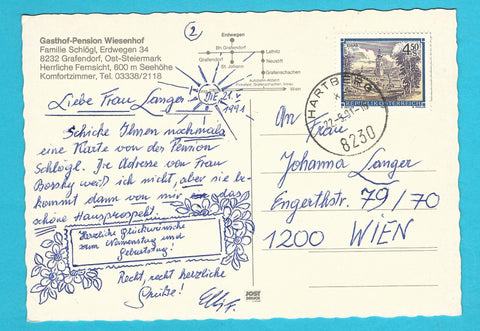 Gasthof-Pension Wiesenhof
Familie Schlögl, Erdwegen 34
8232 Grafendorf, Ost-Steiermark
Herrliche Fernsicht, 600 m Seehöhe
Komfortzimmer, Tel. 03338/2118
2
Erdwegen
Bhf. Grafendorf
Lafnitz
Grafendorf
Neustift
St. Johann
Grafenschachen
Wien
Liebe Frau Langer
1991
Schicke Ihnen nochmals
eine Karte von der Pension
Schlögl. Die Adresse von Frau
weiß ich nicht, aber sie be-
kommt dann von mir das
schöne Hausprospekt.
Herzliche Glückwünsche
zum Namenstag und
Geburtstag!
Recht, recht herzliche
Grüße!
4.50
REPUBLIK ÖSTERREICH
HARTBERG
8230
An
Frau
Johanna Langer
Engerthstr. 79/70
1200 WIEN
JOST
DRUCK